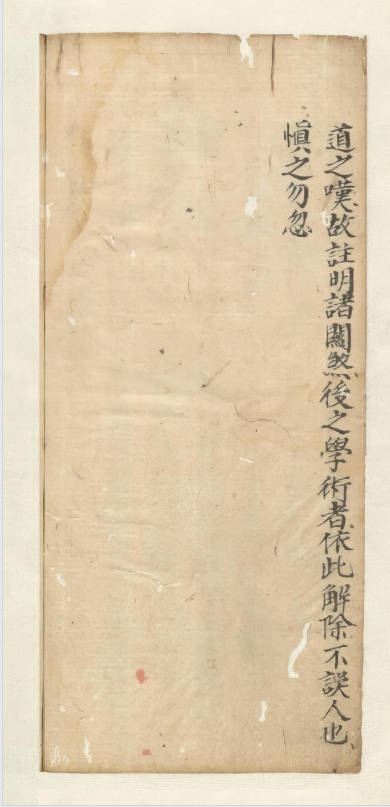 道之嘆故註明諸關煞後之學術者依此解除不誤人也
慎之勿忽